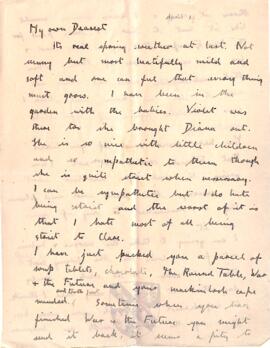 April 1
My own Dearest
Its real spring weather at last. Not
sunny but most blissfully mild and
soft and one can feel that everything
must grow. I have been in the
garden with the babies. Violet was
there too she brought Diana out.
She is so nice with little children
and so sympathetic to them though
she is quite strict when necessary.
I can be sympathetic but I do hate
being strict and the worst of it is
that I hate most of all being
strict to Clare.
I have just packed you a parcel of
soup tablets, chocolate, The Round Table, War
& the Future and your mackintosh cape
and tooth
mended. Sometime when you have
finished War & the Future you might
send it back, it seems a pity to